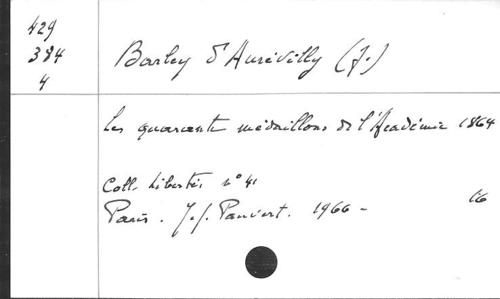 429
384
4
Barbey d'Aurévilly (J.)
Les quarante médaillons de l'Académie 1864
Coll. Libertés n° 41
Paris. J.J. Pauvert. 1966 -
16